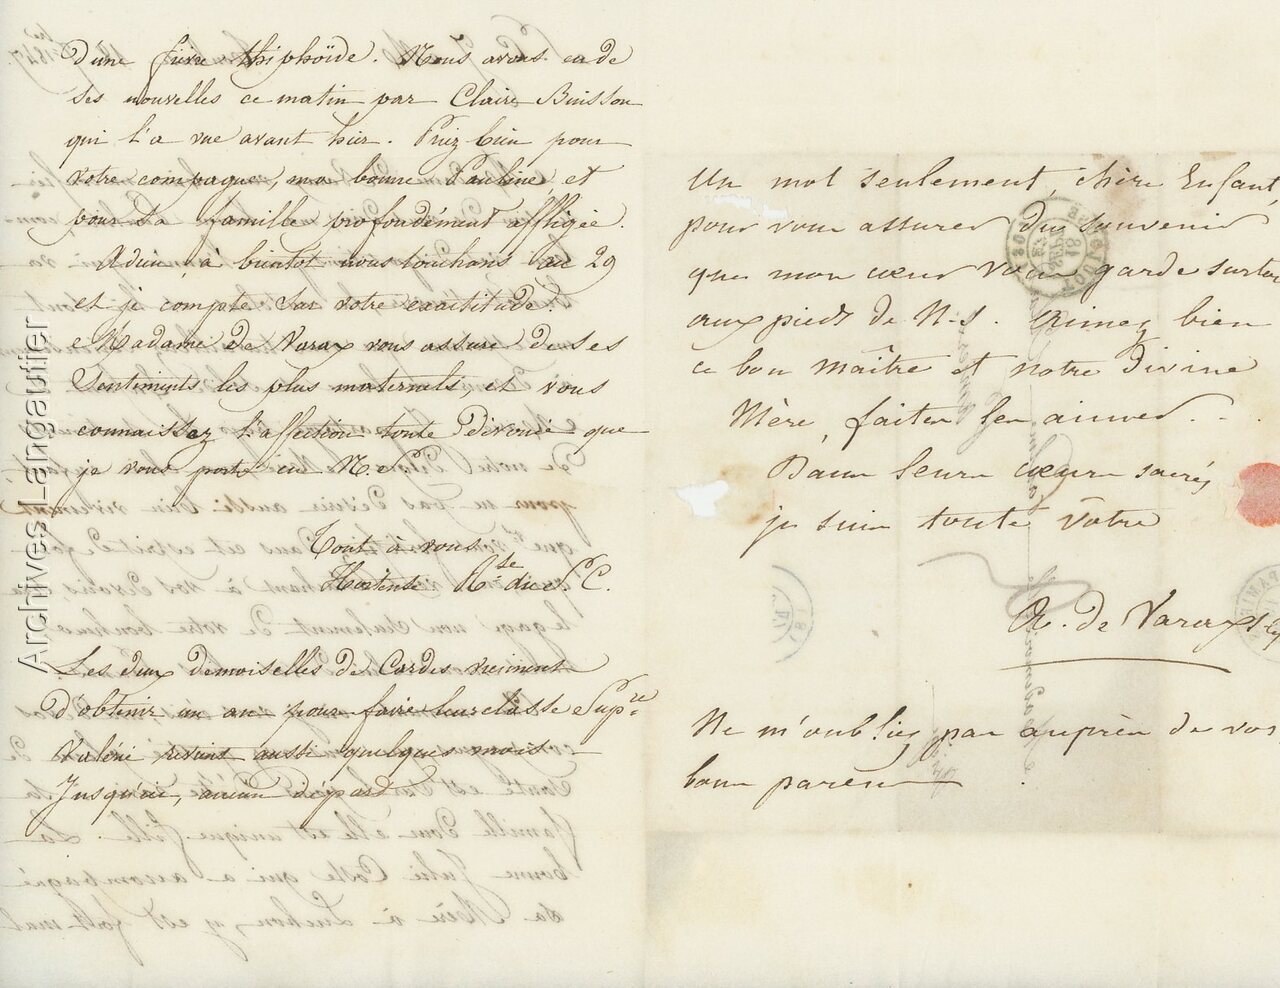 d'une fièvre thiphoïde. Nous avons eu de
ses nouvelles ce matin par Claire Buisson
qui l'a vue avant hier. Priez bien pour
votre compagne, ma bonne Pauline, et
pour sa famille profondément affligée.
Adieu, à bientot nous touchons au 29
et je compte sur votre exactitude.
Madame de Varax vous assure de ses
sentiments les plus maternels, et vous
connaissez l'affection toute dévouée que
je vous porte en N. S.
Tout à vous
Hortense Rse du S. C.
Les deux demoiselles de Cardes viennent
d'obtenir un an pour faire leur classe Supre
Valérie revient aussi quelques mois
Jusqu'ici, aucun départ
Un mot seulement, chère Enfant,
pour vous assurer du souvenir
que mon cœur vous garde surtout
aux pieds de N-S. Aimez bien
ce bon Maître et notre divine
Mère, faites les aimer.
Dans leurs cœurs sacrés
je suis toute Vôtre
A. de Varax
Ne m'oubliez pas auprès de vos
bons parens
Archives Langautier